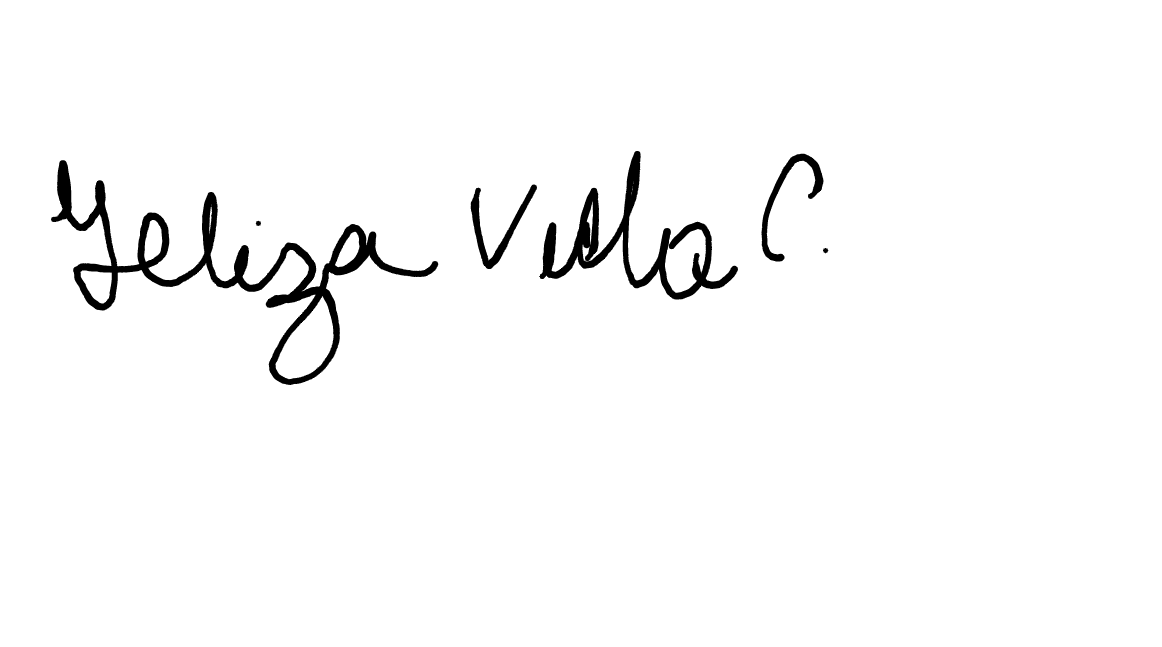 Yeliza Villa C.